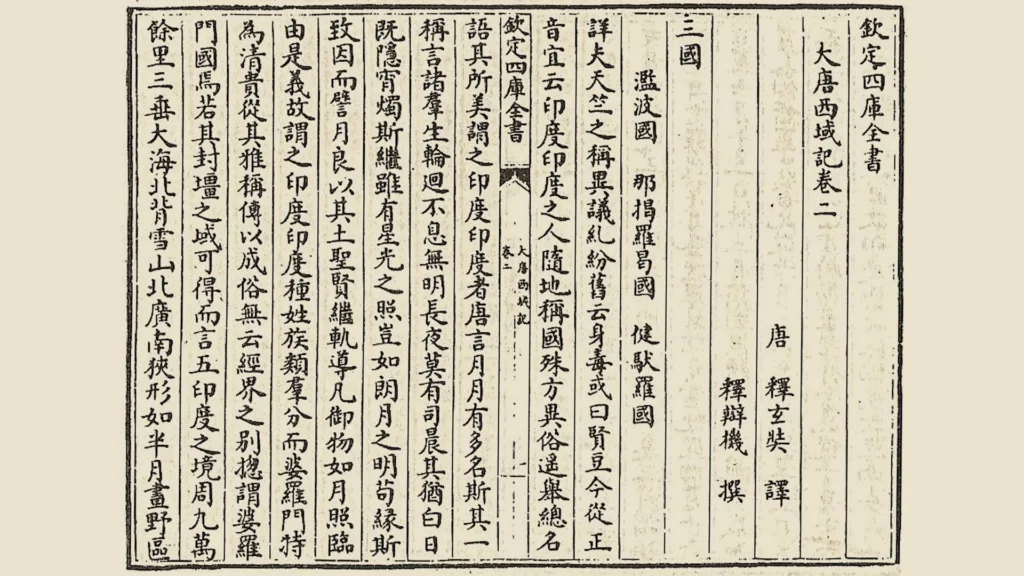 欽定四庫全書
大唐西域記卷二
唐 釋玄奘 譯
釋辯機 撰
三國
濫波國 那揭羅昌國 健馱羅國
詳夫天竺之稱異議糺紛舊云身毒或曰賢豆今從正
音宜云印度印度之人隨地稱國殊方異俗遥舉總名
欽定四庫全書
大唐西域記
卷二
一
語其所美謂之印度印度者唐言月月有多名斯其一
稱言諸羣生輪迴不息無明長夜莫有司晨其猶白日
既隱宵燭斯繼雖有星光之照豈如朗月之明茍緣斯
致因而譬月良以其土聖賢繼軌導凡御物如月照臨
由是義故謂之印度印度種姓族類羣分而婆羅門特
為清貴從其雅稱傳以成俗無云經界之别揔謂婆羅
門國焉若其封壃之域可得而言五印度之境周九萬
餘里三垂大海北背雪山北廣南狹形如半月畫野區